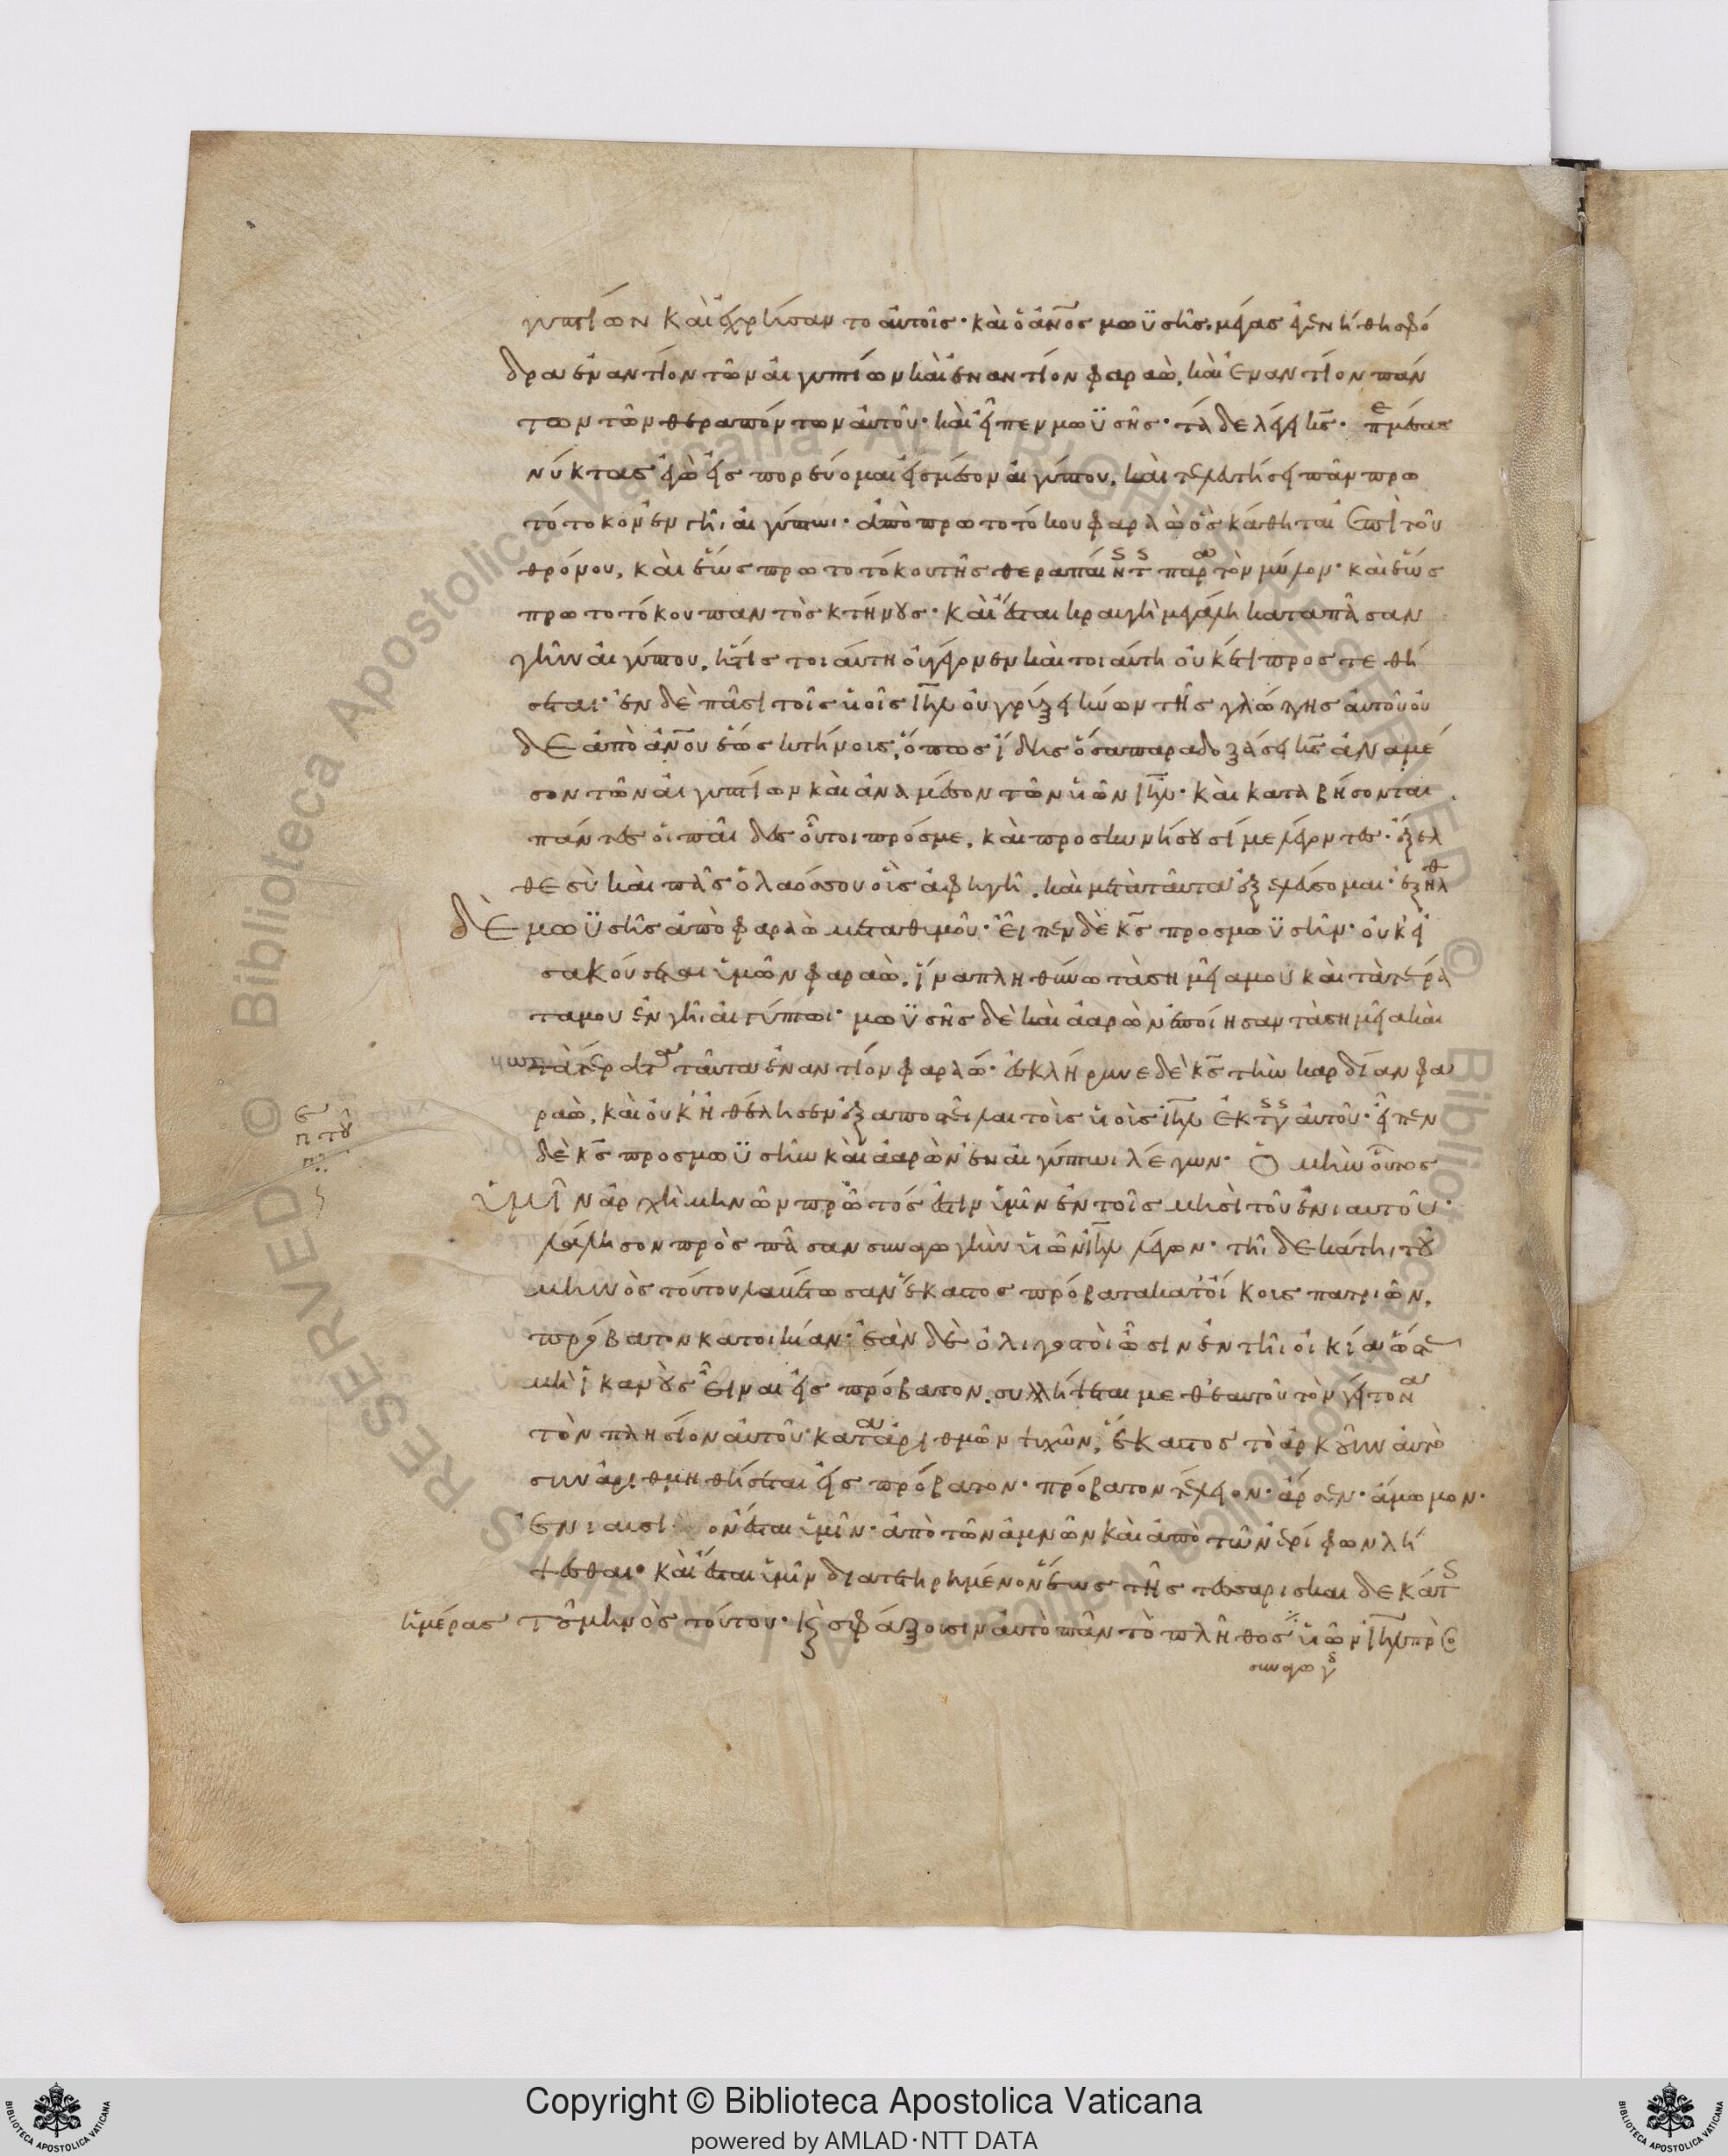 γυπτίων καὶ ἔχρησαν το αὐτοῖς· καὶ ὁ ἄνος μωϋσῆς· μέγας ἐγενήθη σφό
δρα ἐναντίον τῶν αἰγυπτίων καὶ ἐναντίον φαραὼ, καὶ ἐναντίον πάν
των τῶν θεραπόντων αὐτοῦ· καὶ εἶπεν μωϋσῆς· τάδε λέγει κς· π̅ μέσας
νύκτας ἐγὼ εἰσπορεύομαι εἰς μέσον αἰγύπτου, καὶ τελευτήσει πᾶν πρω
τότοκον ἐν γῆι αἰγύπτωι· ἀπὸ πρωτοτόκου φαραὼ ὃς κάθηται ἐπὶ τοῦ
θρόνου, καὶ ἕως πρωτοτόκου τῆς θεραπαίνης τῆς παρὰ τὸν μύλον· καὶ ἕως
πρωτοτόκου παντὸς κτήνους· καὶ ἔσται κραυγὴ μεγάλη κατὰ πᾶσαν
γῆν αἰγύπτου, ἥτις τοιαύτη οὐ γέγονεν καὶ τοιαύτη οὐκέτι προστεθή
σεται· ἐν δὲ πᾶσι τοῖς υἱοῖς ιηλ οὐ γρύξει κύων τῆς γλώσσης αὐτοῦ οὐ
δὲ ἀπὸ ἀνου ἕως κτήνους, ὅπως ἴδης ὅσα παραδοξάσει κς ἀναμέ
σον τῶν αἰγυπτίων καὶ ἀνὰ μέσον τῶν υἱῶν ιηλ· καὶ καταβήσονται
πάντες οἱ παῖδες οὗτοι πρός με, καὶ προσκυνήσουσί με λέγοντες· ἔξελ
θε σὺ καὶ πᾶς ὁ λαός σου οἷς ἀφηγῆ. καὶ μετὰ ταῦτα ἐξελεύσομαι· ἐξῆλθ
δὲ μωϋσῆς ἀπὸ φαραὼ μετὰ θυμοῦ· εἶπεν δὲ κς προς μωϋσῆν· οὐκ εἰ
σακούσεται ὑμῶν φαραὼ, ἵνα πληθύνω τὰ σημεῖα μου καὶ τὰ τέρα
τα μου ἐν γῆι αἰγύπτωι· μωϋσῆς δὲ καὶ ἀαρὼν ἐποίησαν τὰ σημεῖα καὶ
τὰ τέρατα ταῦτα ἐναντίον φαραώ· ἐσκλήρυνε δὲ κς τὴν καρδίαν φα
ραὼ, καὶ οὐκ ἠθέλησεν ἐξαποστεῖλαι τοὺς υἱοὺς ιηλ ἐκ τῆς γῆς αὐτοῦ· εἶπεν
δὲ κς προς μωϋσῆν καὶ ἀαρὼν ἐν αἰγύπτωι λέγων· Ὁ μὴν οὗτος
ὑμῖν ἀρχὴ μηνῶν πρῶτός ἐστιν ὑμῖν ἐν τοῖς μησὶ τοῦ ἐνιαυτοῦ·
λάλησον πρὸς πᾶσαν συναγωγὴν υἱῶν ιηλ λέγων· τῆι δεκάτηι τοῦ
μηνὸς τούτου λαβέτωσαν ἕκαστος πρόβατα κατ' οἴκους πατριῶν,
πρόβατον κατ' οικίαν· ἐὰν δὲ ὀλιγοστοὶ ὦσιν ἐν τῆι οἰκίαι ὥστε
μὴ ἱκανοὺς εἶναι εἰς πρόβατον, συλλήψεται μεθ' ἑαυτοῦ τὸν γείτονα
τὸν πλησίον αὐτοῦ· κατὰ ἀριθμὸν ψυχῶν, ἕκαστος τὸ ἀρκοῦν αὐτῶ
συναριθμηθήσεται εἰς πρόβατον· πρόβατον τέλειον· ἄρσεν· ἄμωμον·
ἐνιαύσιον ἔσται ὑμῖν· ἀπὸ τῶν ἀμνῶν καὶ ἀπὸ τῶν ἐρίφων λή
ψεσθαι· καὶ ἔσται ὑμῖν διατετηρημένον ἕως τῆς τεσαρισκαιδεκάτης
ἡμέρας τοῦ μηνὸς τούτου· καὶ σφάξουσιν αὐτὸ πᾶν τὸ πλῆθος υἱῶν ιηλ πρὸ
συναγωγῆς